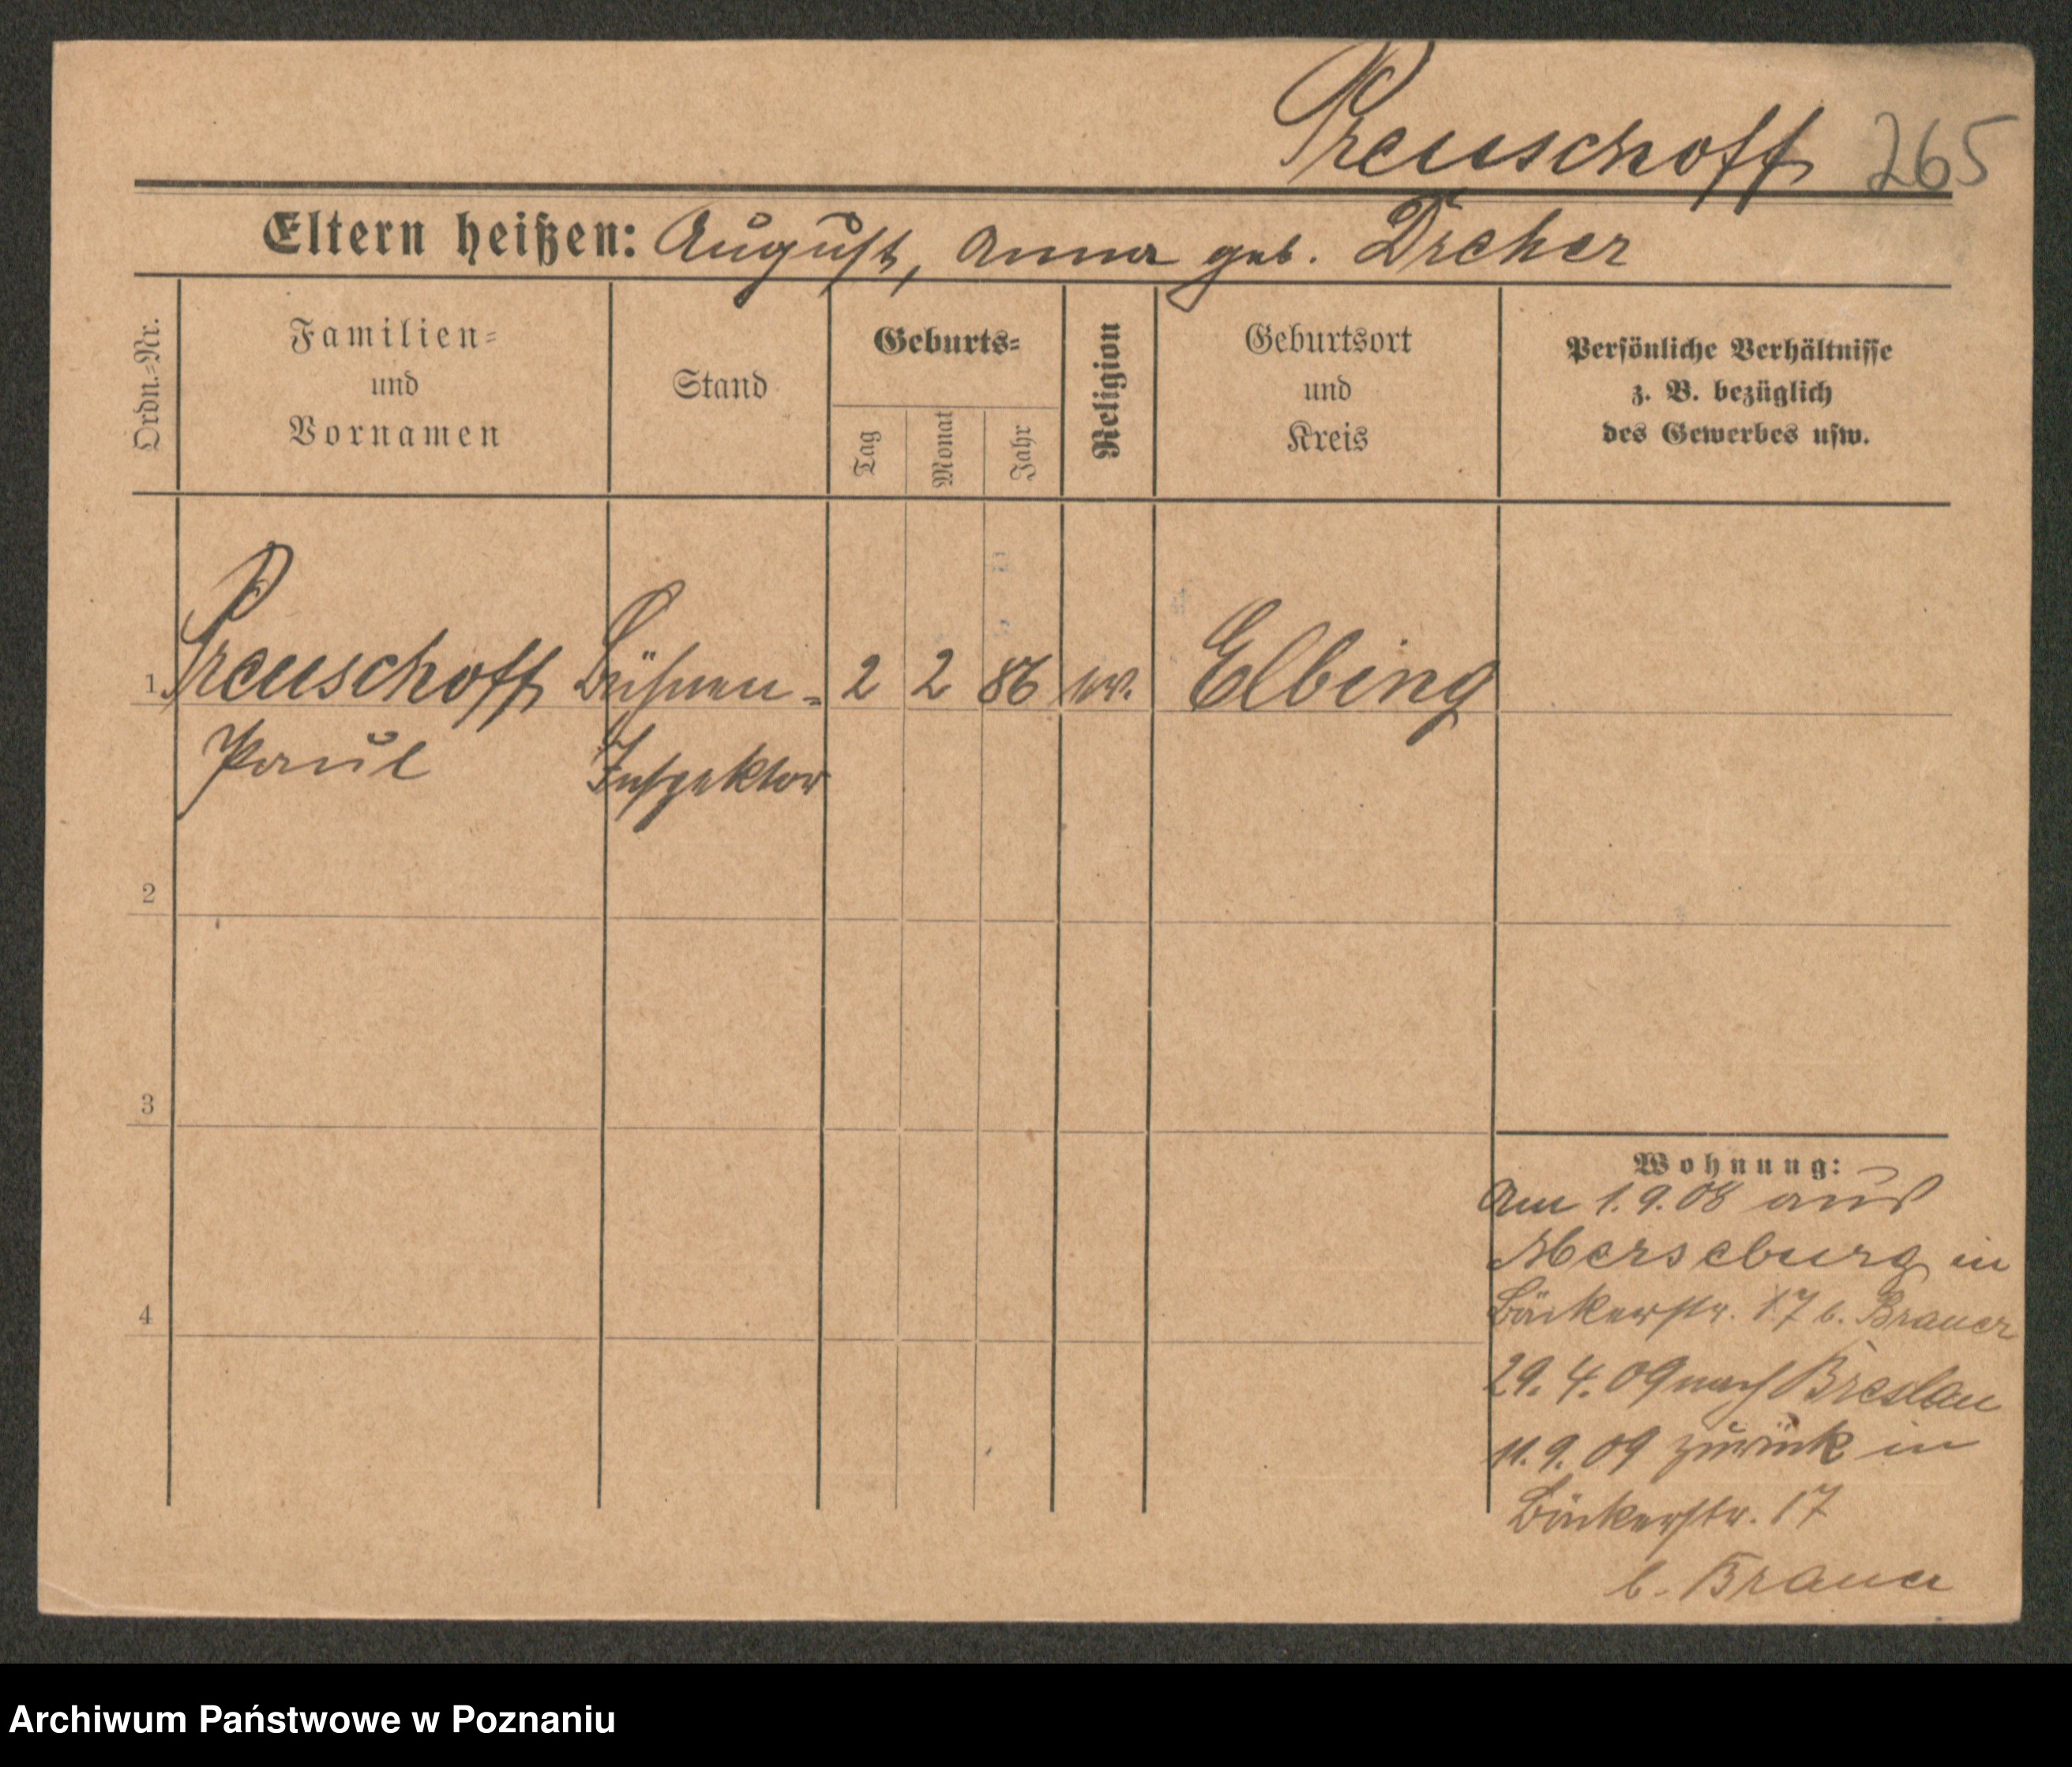 Preuschoff 265
Eltern heißen: August, Anna geb. Dreher
Ordn.-Nr.
Familien-
und
Vornamen
Stand
Geburts-
Tag
Monat
Jahr
Religion
Geburtsort
und
Kreis
Persönliche Verhältnisse
z. B. bezüglich
des Gewerbes usw.
1 Preuschoff Bühnen- 2 2 86 ev. Elbing
Paul Inspektor
2
3
4
Wohnung:
Am 1.9.08 aus
Merseburg in
Bäckerstr. 17 b. Brauer
29.4.09 nach Breslau
11.9.09 zurück in
Bäckerstr. 17
b. Brauer
Archiwum Państwowe w Poznaniu